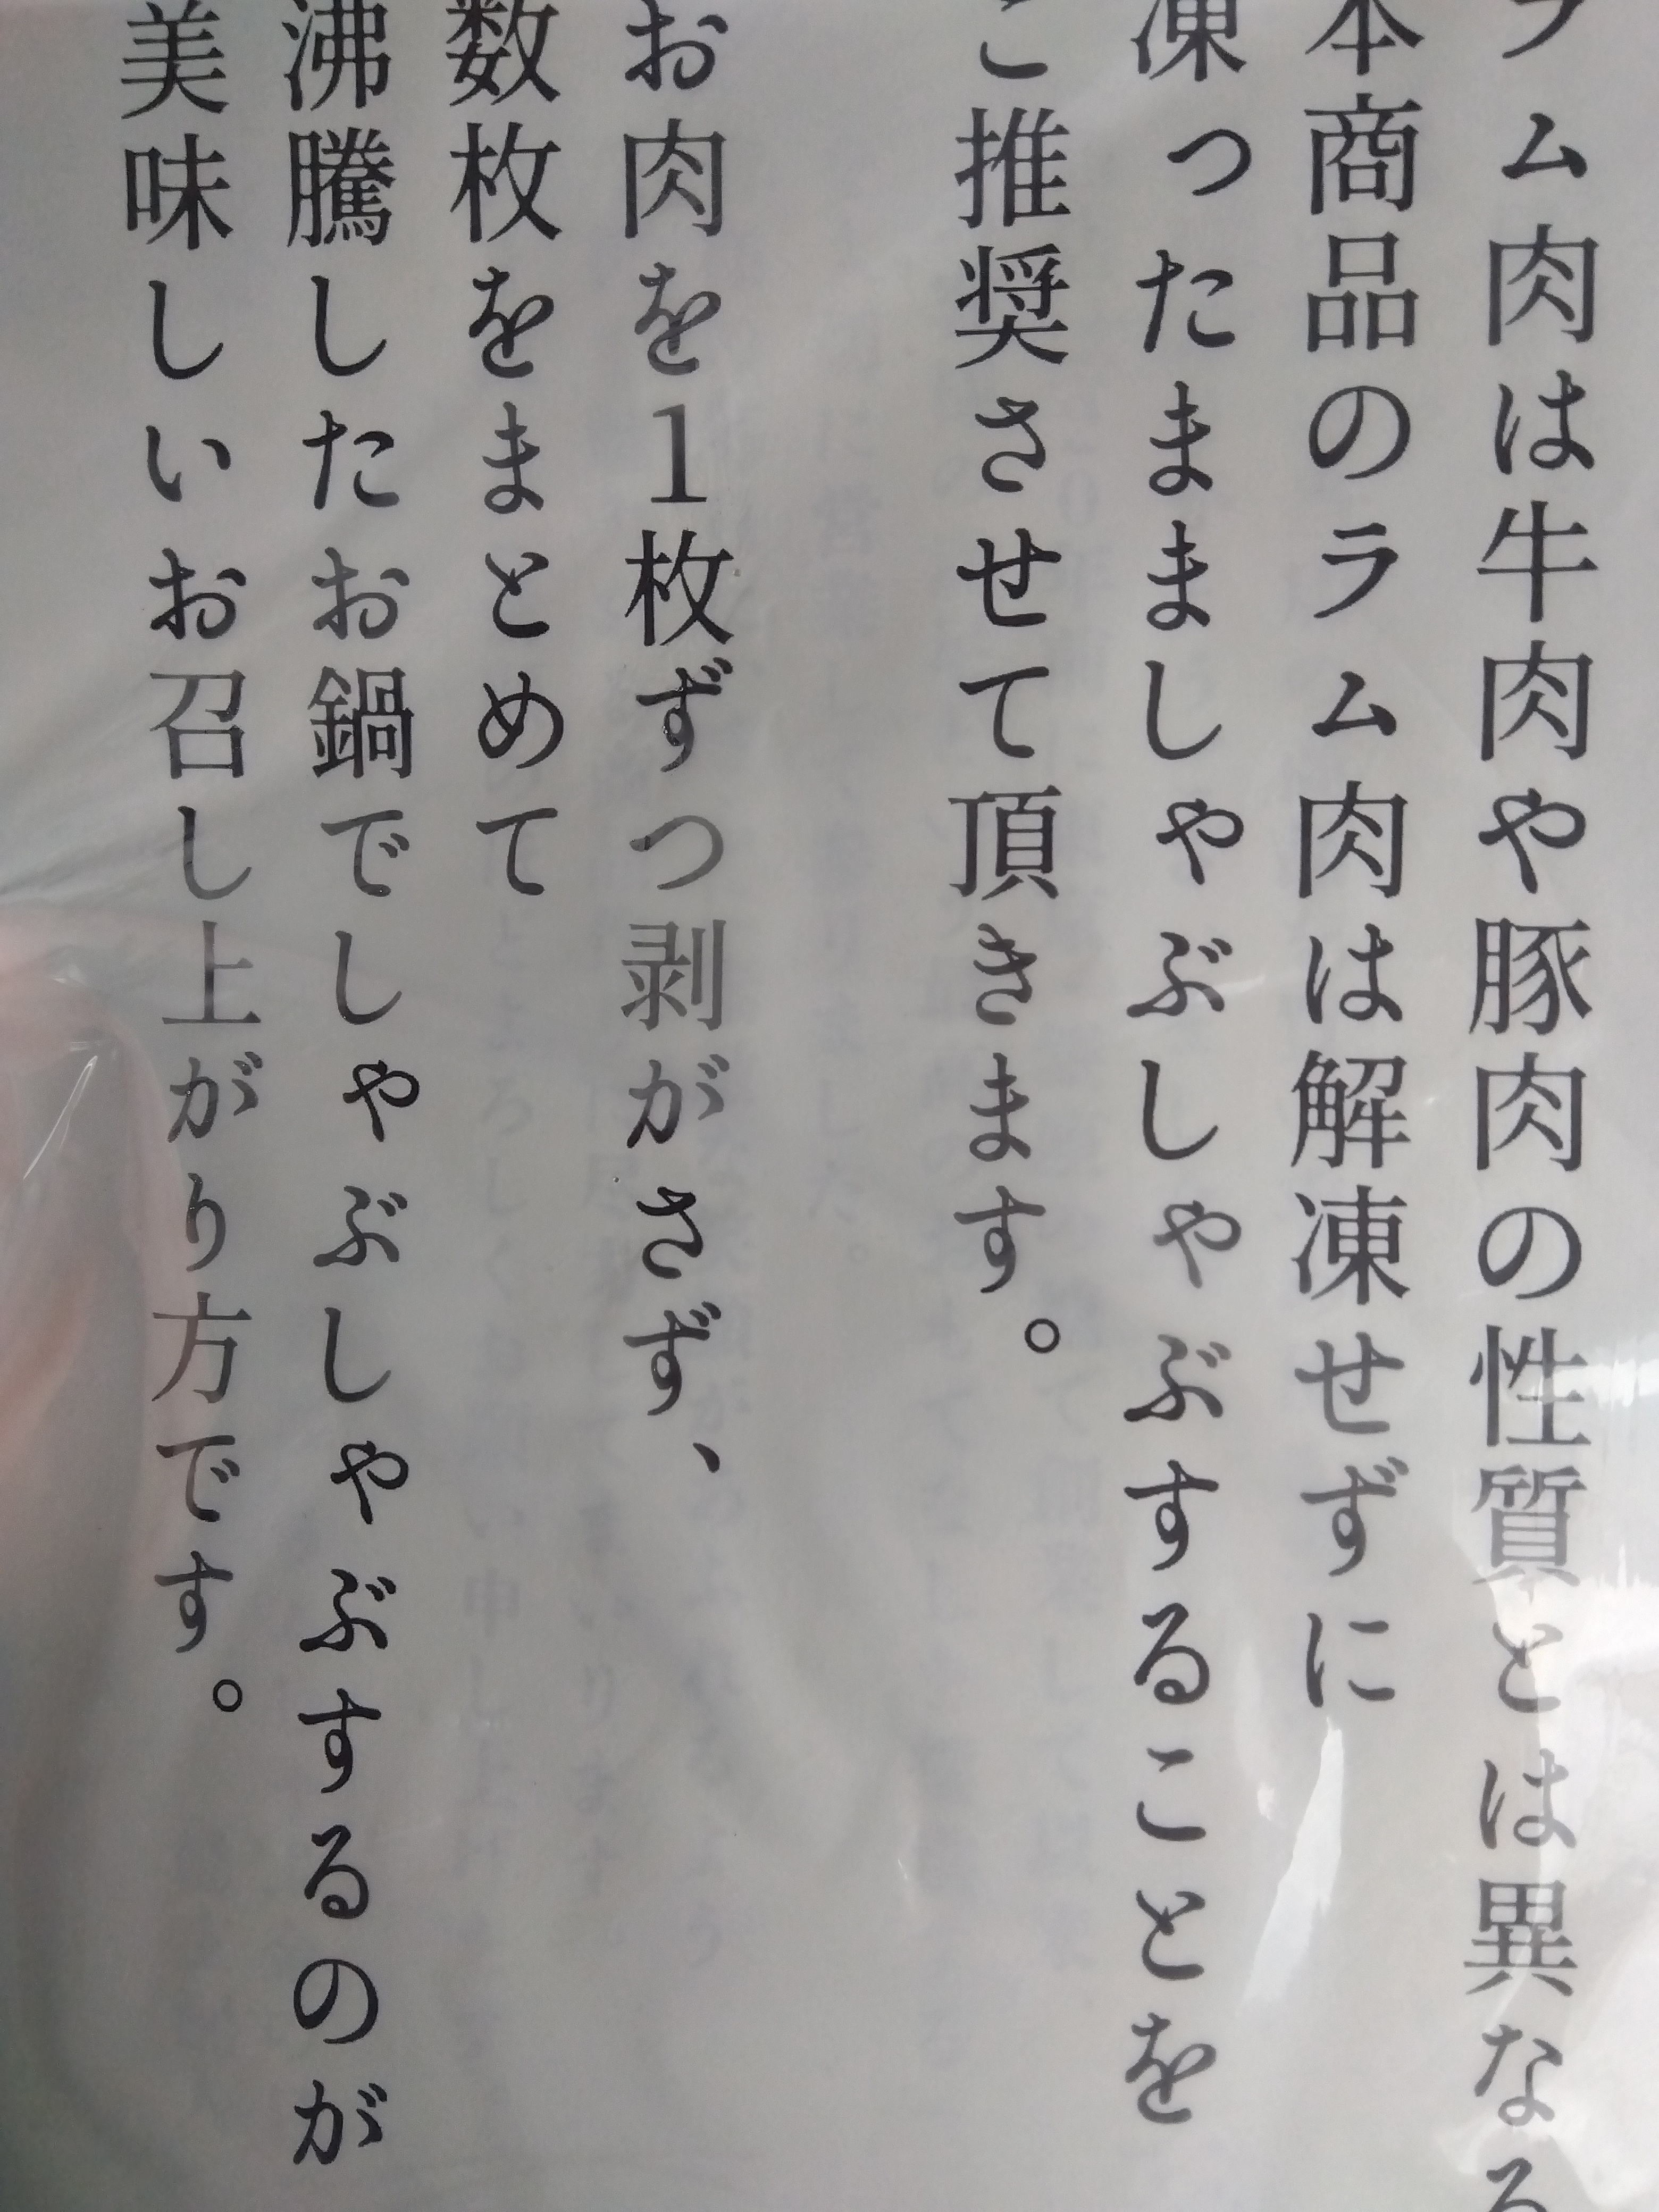 ラム肉は牛肉や豚肉の性質とは異なる
本商品のラム肉は解凍せずに
凍ったまましゃぶしゃぶすることを
ご推奨させて頂きます。
お肉を1枚ずつ剥がさず、
数枚をまとめて
沸騰したお鍋でしゃぶしゃぶするのが
美味しいお召し上がり方です。